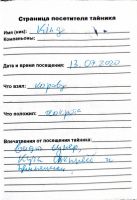 Страница посетителя тайника
Имя (ник): Кинд
Компаньоны:
Дата и время посещения: 13.09.2020
Что взял: корову
Что положил:
Впечатления от посещения тайника:
Видно супер,
Куча